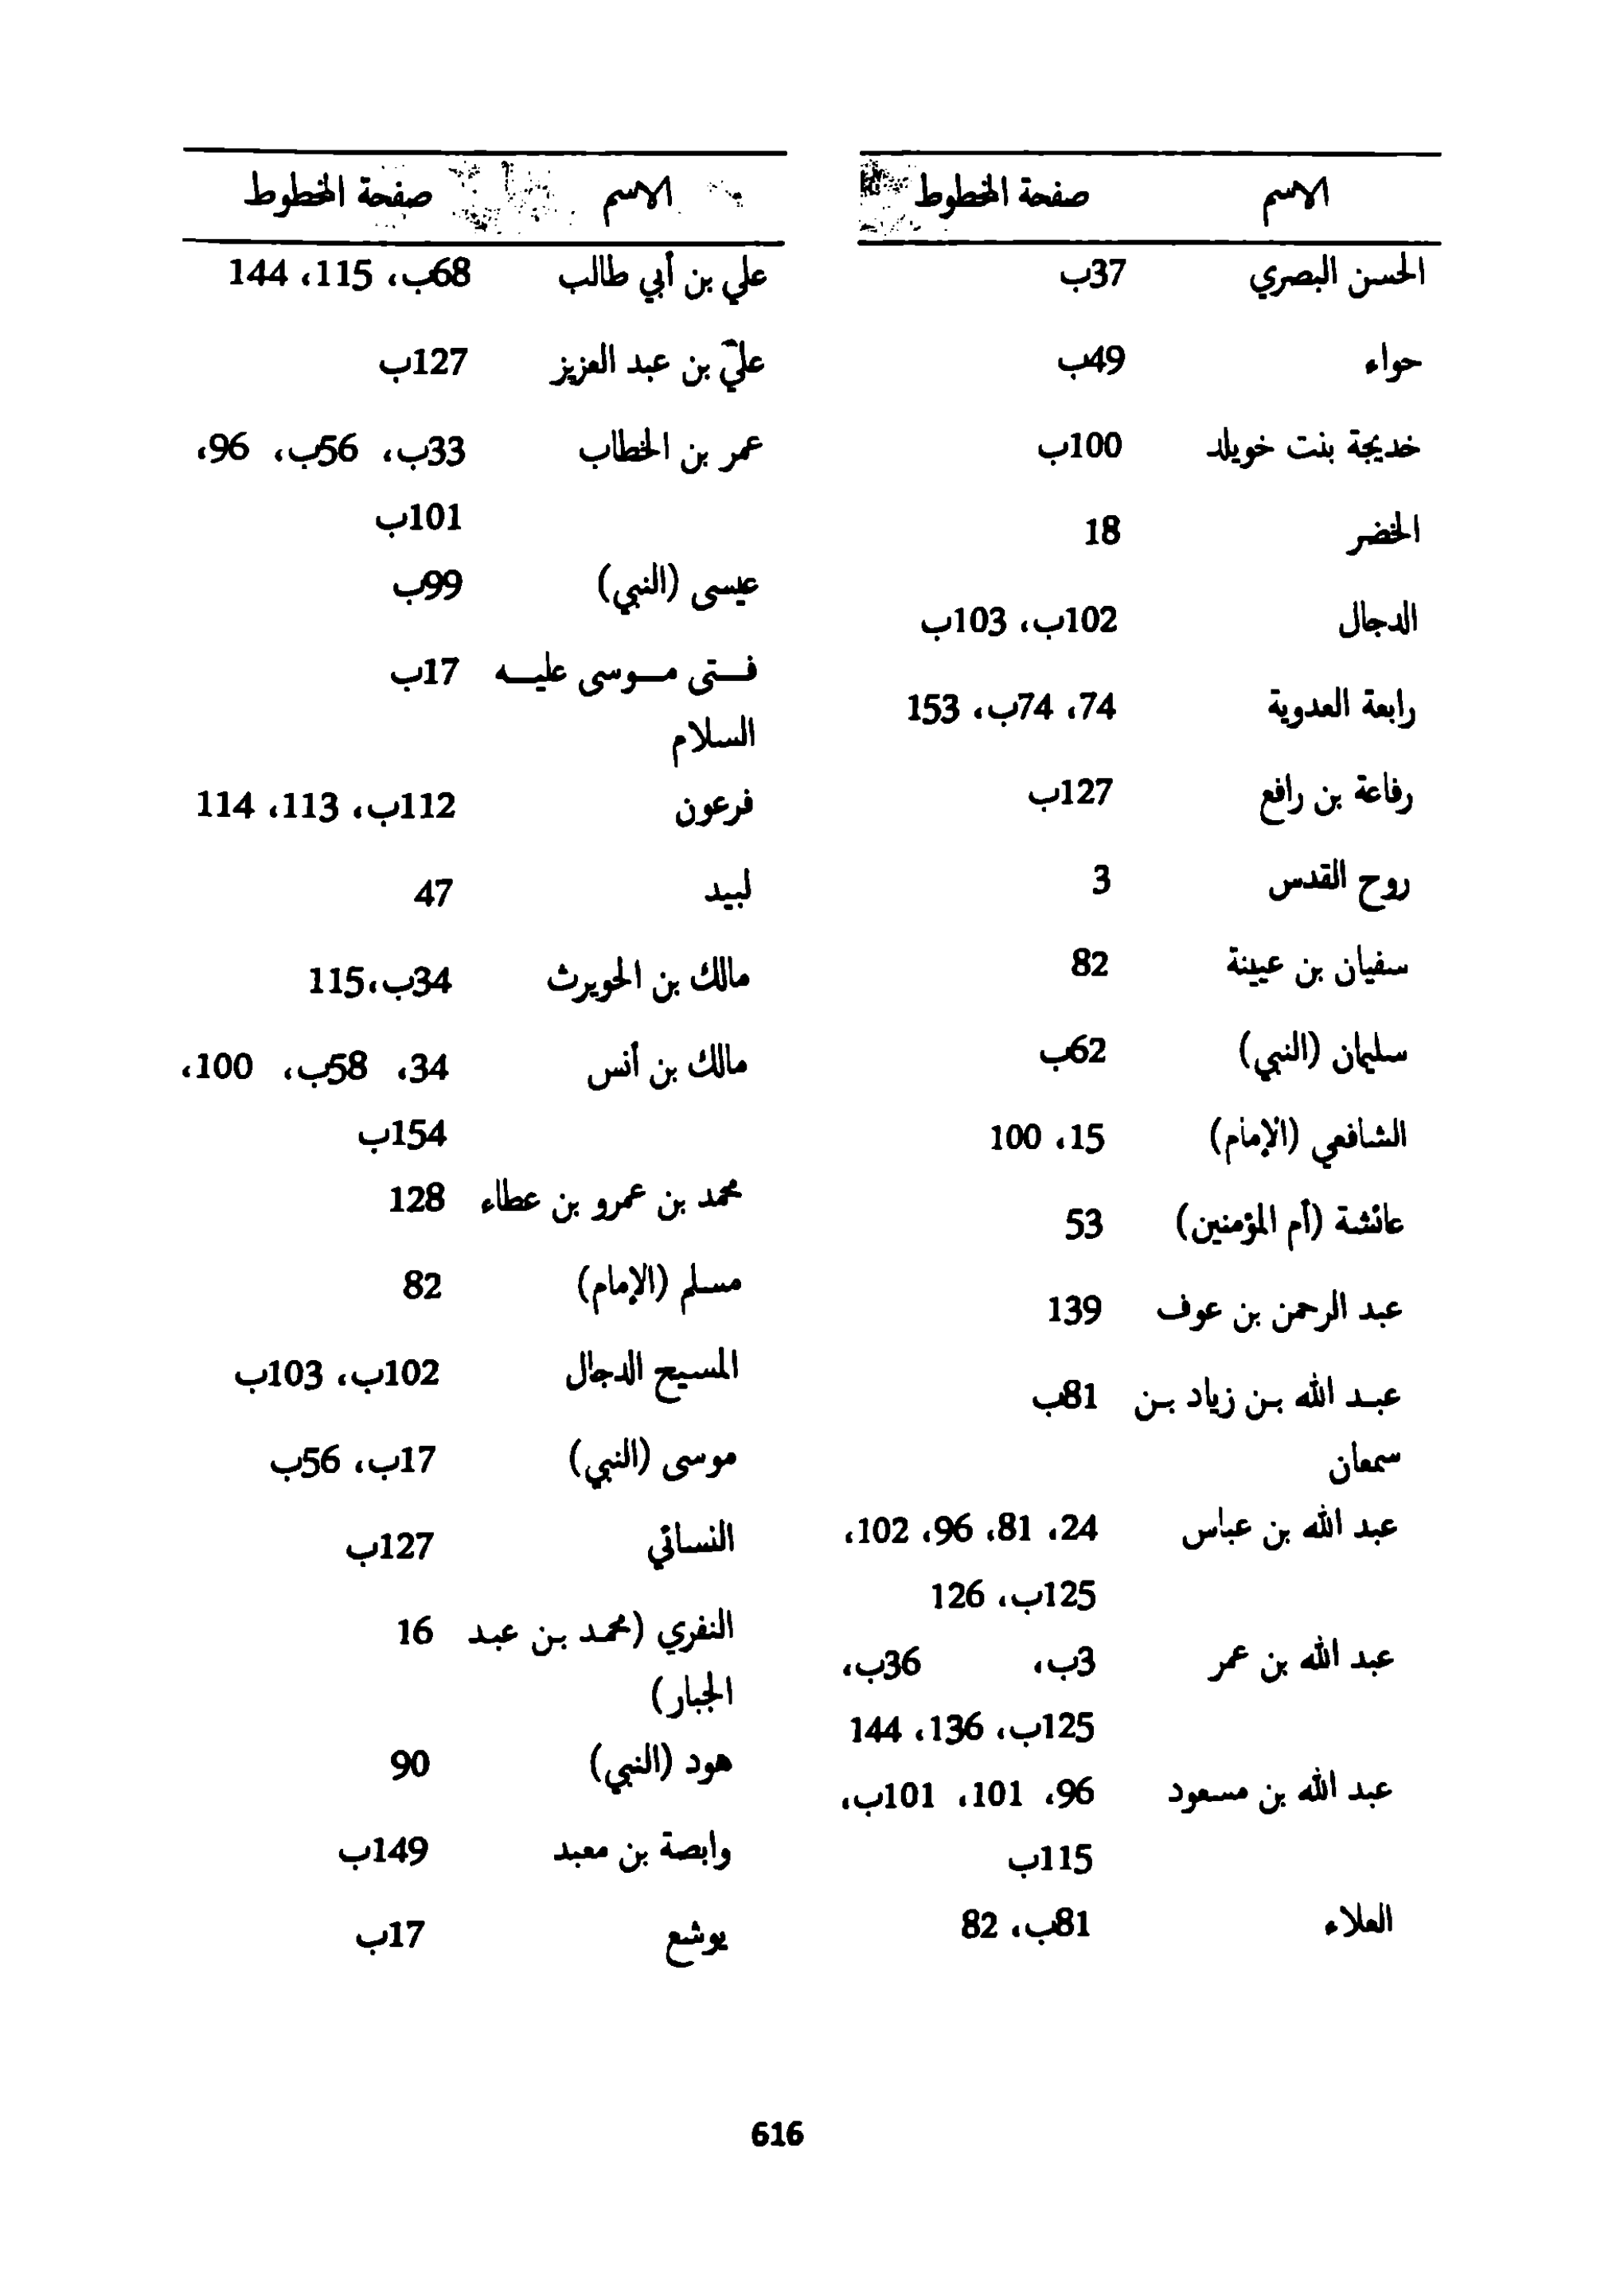 الاسم صفحة المخطوط
الحسن البصري 37ب
حواء 49ب
خديجة بنت خويلد 100ب
الخضر 18
الدجال 102ب، 103ب
رابعة العدوية 74، 74ب، 153
رفاعة بن رافع 127ب
روح القدس 3
سفيان بن عيينة 82
سليمان (النبي) 62ب
الشافعي (الإمام) 15، 100
عائشة (أم المؤمنين) 53
عبد الرحمن بن عوف 139
عبد الله بن زياد بن 81ب
سمعان
عبد الله بن عباس 24، 81، 96، 102،
125ب، 126
عبد الله بن عمر 3ب، 36ب،
125ب، 136، 144
عبد الله بن مسعود 96، 101، 101ب،
115ب
العلاء 81ب، 82
الاسم صفحة المخطوط
علي بن أبي طالب 68ب، 115، 144
عليّ بن عبد العزيز 127ب
عمر بن الخطاب 33ب، 56ب، 96،
101ب
عيسى (النبي) 99ب
فتى موسى عليه 17ب
السلام
فرعون 112ب، 113، 114
لبيد 47
مالك بن الحويرث 34ب،115
مالك بن أنس 34، 58ب، 100،
154ب
محمد بن عمرو بن عطاء 128
مسلم (الإمام) 82
المسيح الدجال 102ب، 103ب
موسى (النبي) 17ب، 56ب
النسائي 127ب
النفري (محمد بن عبد 16
الجبار)
هود (النبي) 90
وابصة بن معبد 149ب
يوشع 17ب
616